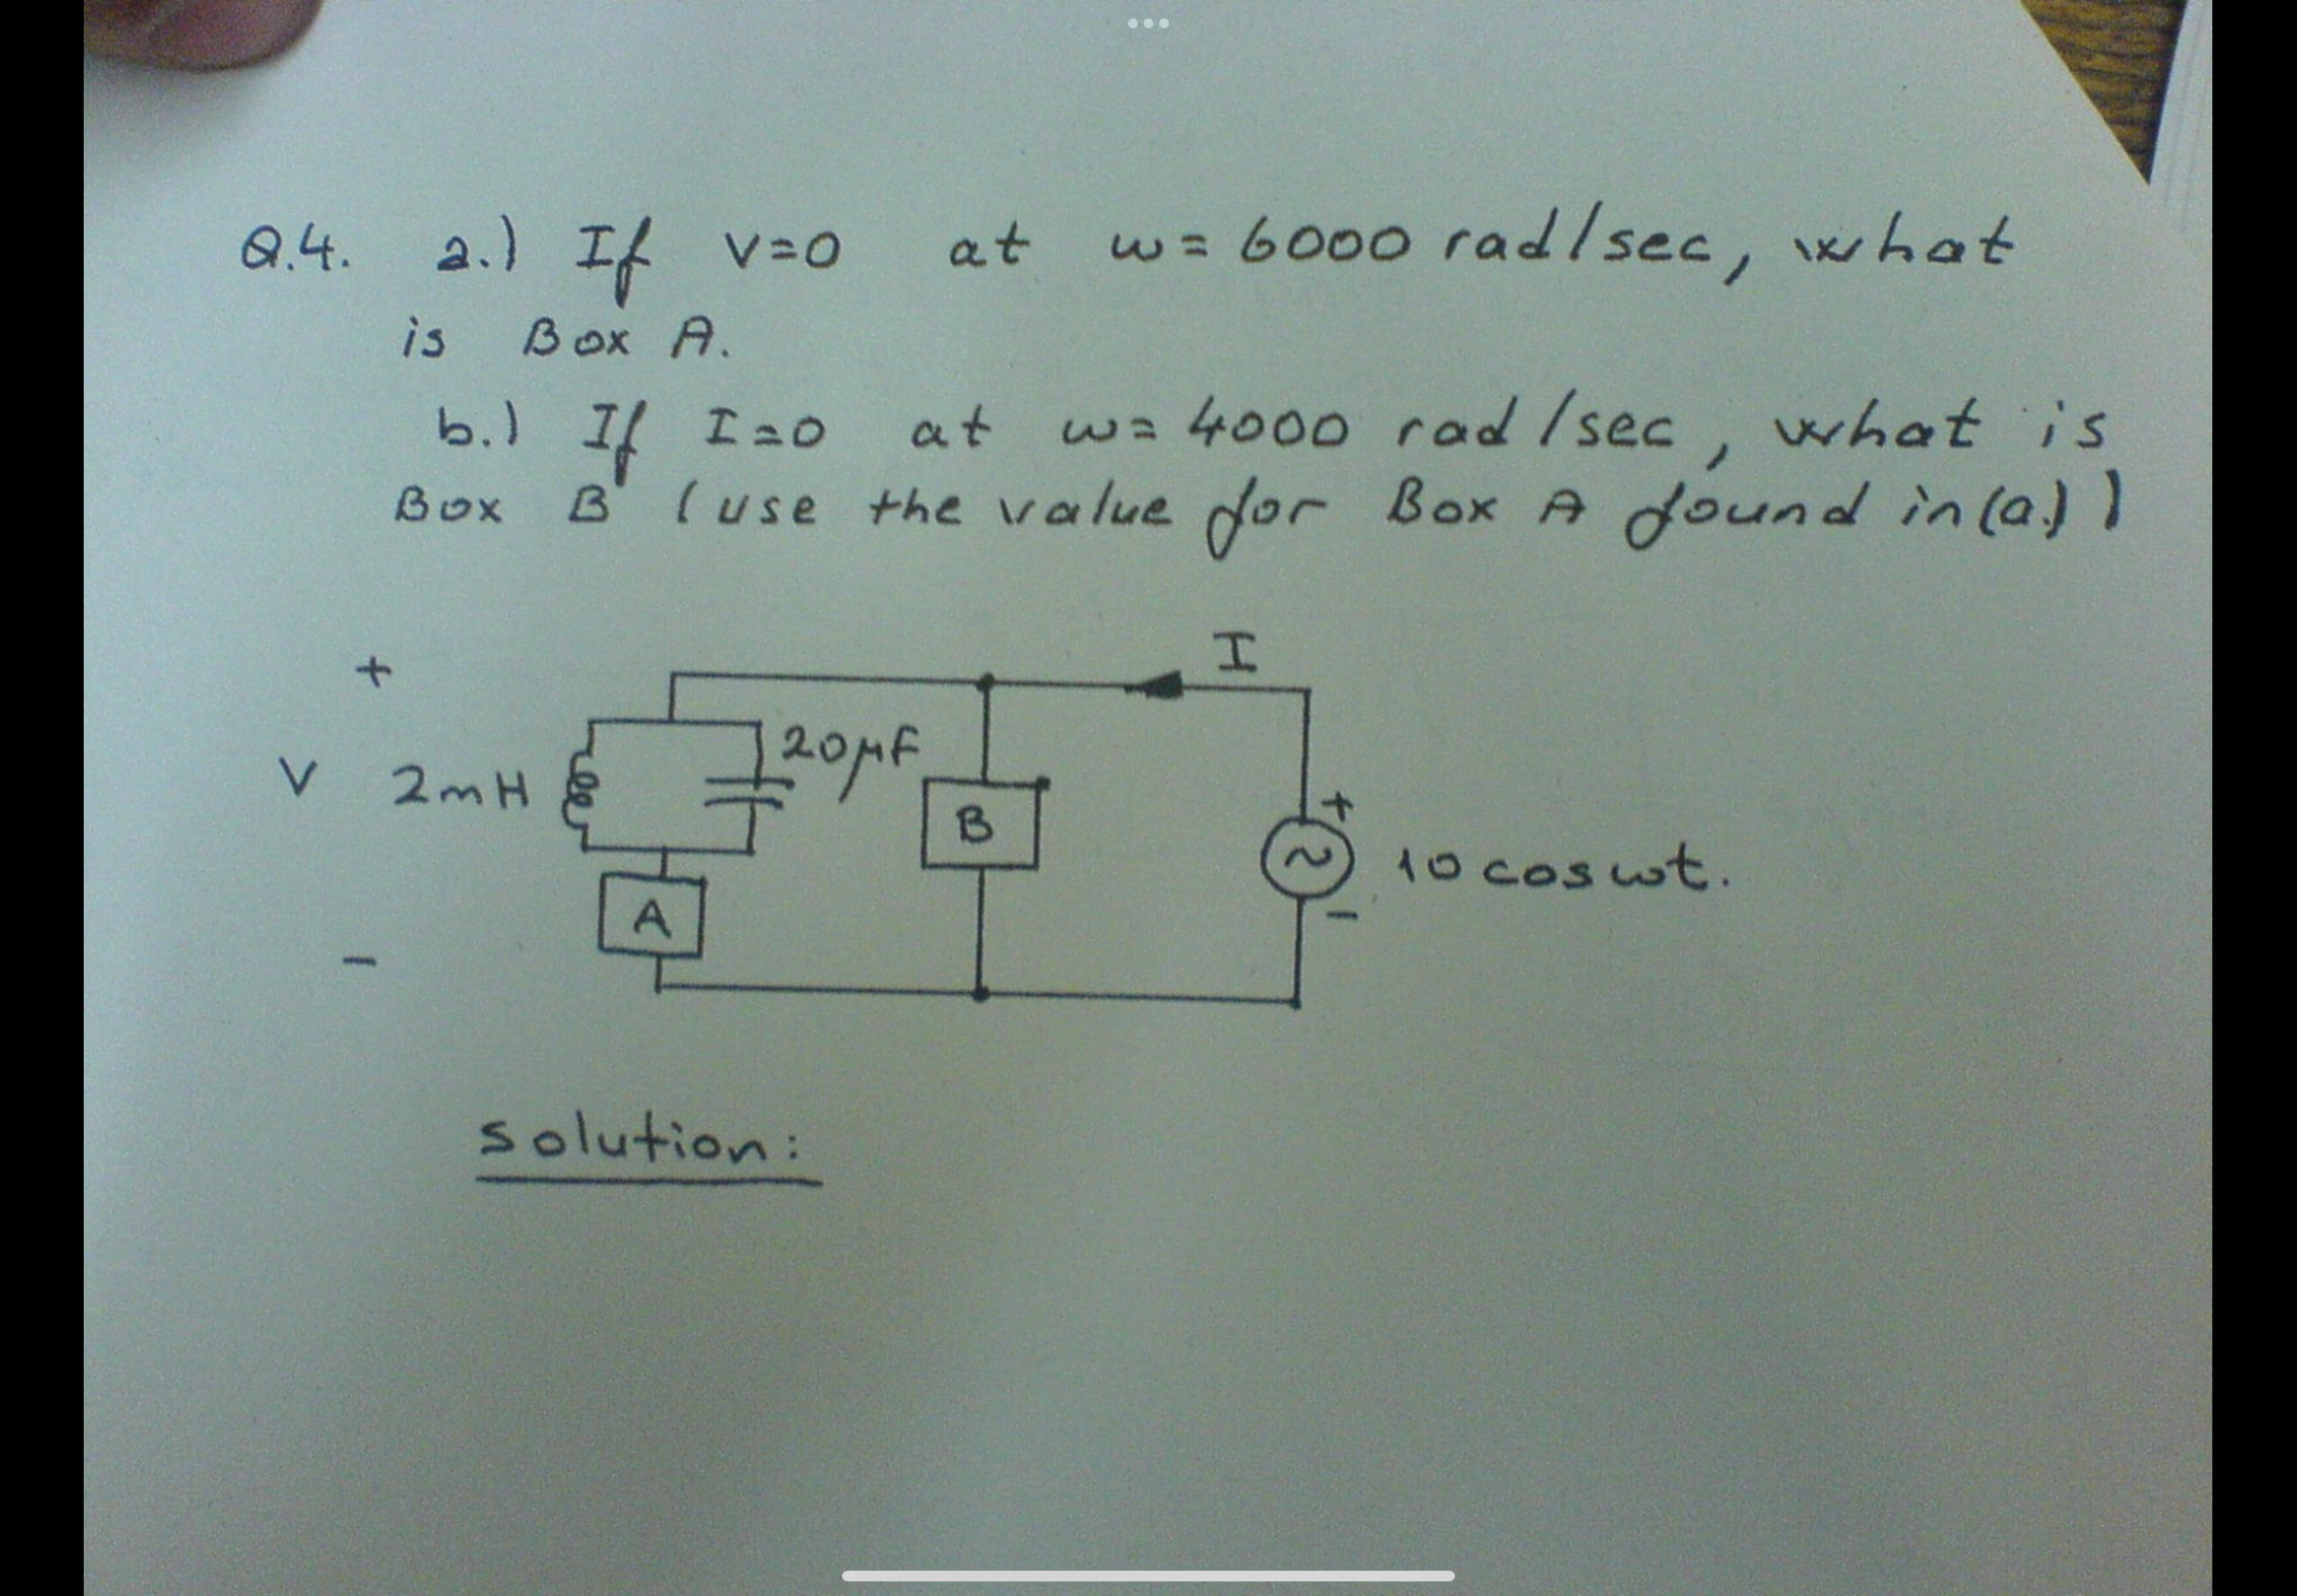 Q.4. a.) If v=0 at w= 6000 rad/sec, what
is Box A.
b.) If I=0 at w= 4000 rad/sec, what is
Box B (use the value for Box A found in(a.))
I
+
20μF
V 2mH
B
+
10 cos wt.
A
-
-
solution: